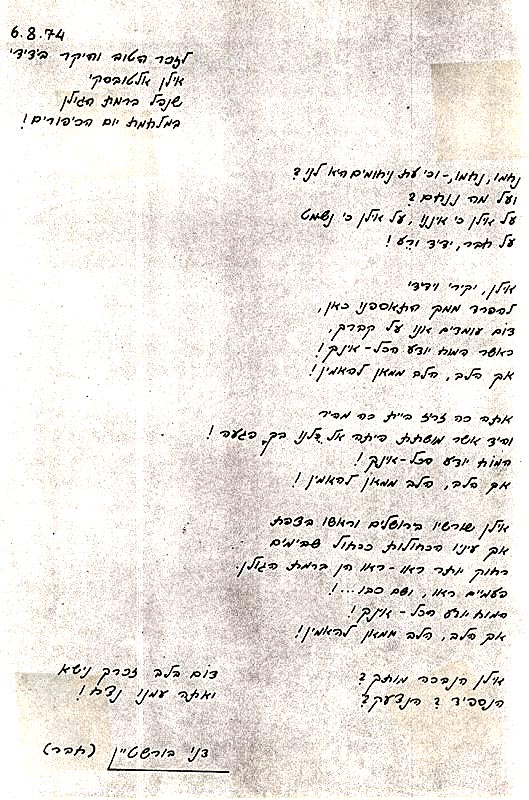 6.8.74
לזכר הטוב והיקר בידידי
אילן אלטובסקי
שנפל ברמת הגולן
במלחמת יום הכיפורים!
נחמו, נחמו,- וכי עת ניחומים הא לנו?
ועל מה ננחם?
על אילן כי איננו, על אילן כי נשמט
על חבר, ידיד ורע!
אילן, יקירי וידידי
להפרד ממך התאספנו כאן,
דום עומדים אנו על קברך,
כאשר המוח יודע הכל - אינך!
אך הלב, הלב ממאן להאמין!
אתה כה זריז היית כה מהיר
והיד אשר מושחת היתה אל כלנו בך, פגעה!
המוח יודע הכל - אינך!
אך הלב, הלב ממאן להאמין!
אילן שורשיו בירושלים וראשו בצפת
אך עיניו הכחולות ככחול שבימים
רחוק יותר ראו - ראו הן ברמת הגולן.
פעמים ראו, ושם כבו...!
המוח יודע הכל - אינך!
אך הלב, הלב ממאן להאמין!
אילן הנבכה מותך?
הנספיד? הנצעק?
דום בלב זכרך נישא
ואתה עמנו נצח!
דני בורשטיין (חבר)